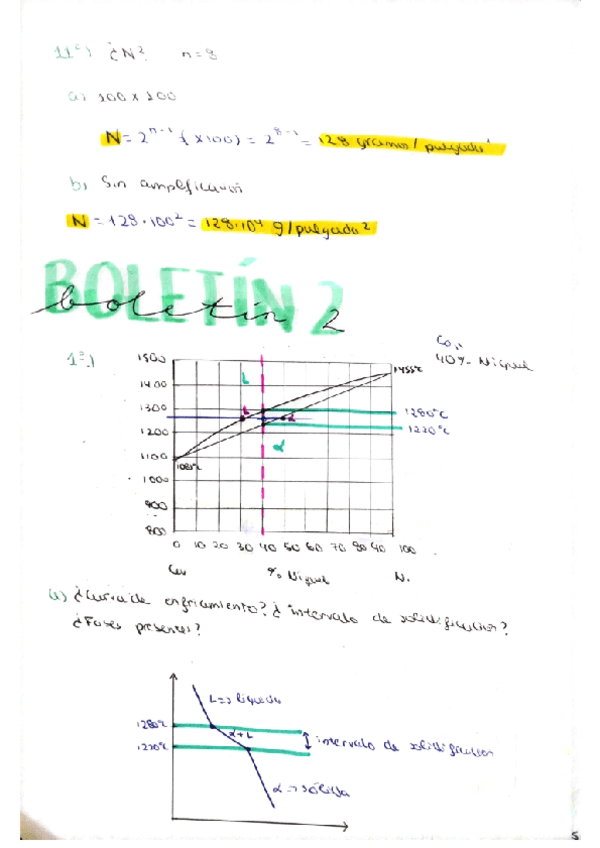 11º) ¿N? n=8
a) 100 x 100
N = 2ⁿ⁻¹ (x100) = 2⁸⁻¹ = 128 gramos / pulgada²
b) Sin amplificación
N = 128 · 100² = 128·10⁴ g/pulgada²
BOLETÍN 2
boletín 2
Co,,
40% Niquel
1º)
1500
1400
1300
1200
1100
1000
900
800
1455ºC
1280ºC
1220ºC
1083ºC
L
L
α
α
0 10 20 30 40 50 60 70 80 90 100
Cu % Niquel Ni
a) ¿Curva de enfriamiento? ¿intervalo de solidificación?
¿Fases presentes?
L => líquido
1280ºC
α + L
1220ºC
intervalo de solidificación
α => sólida
5